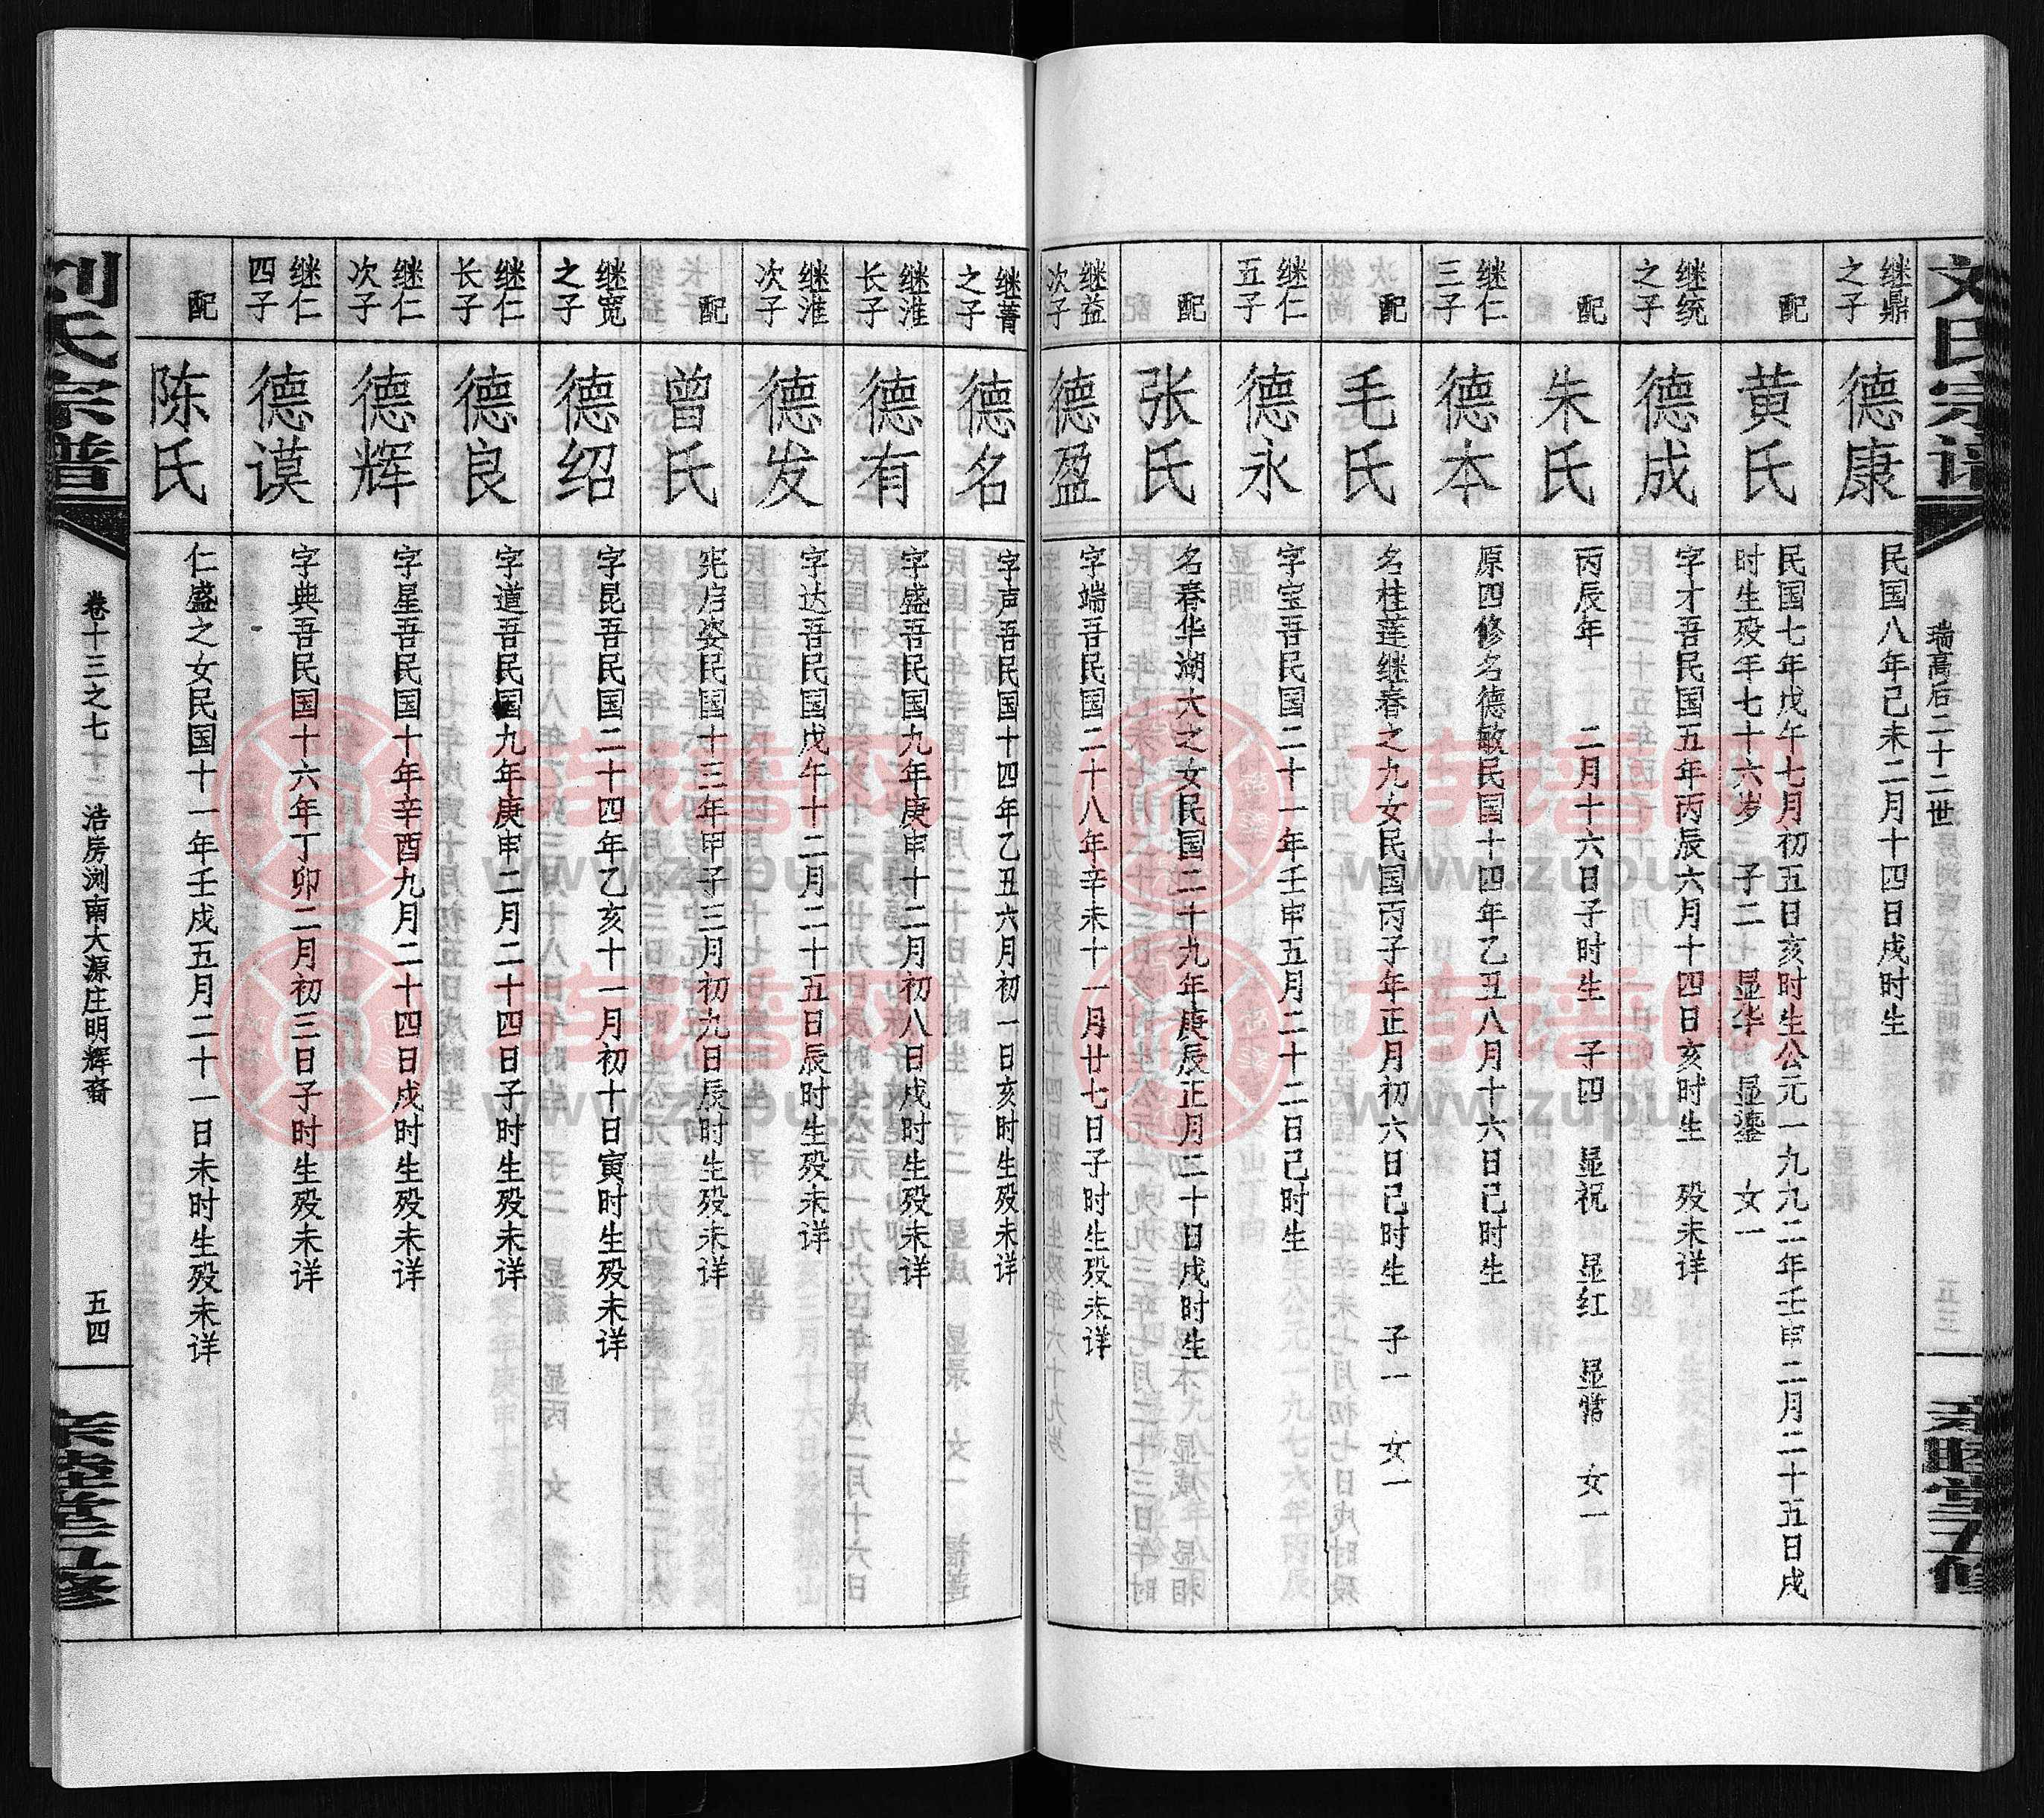 瑞高后二十二世
继鼎之子
德康
民国八年己未二月十四日戌时生
配
黄氏
民国七年戊午七月初五日亥时生公元一九九二年壬申二月二十五日戌
时生殁年七十六岁 子二 显华 显鎏 女一
继统之子
德成
字才吾民国五年丙辰六月十四日亥时生 殁未详
配
朱氏
丙辰年 二月十六日子时生 子四 显祝 显红 显常 女一
继仁三子
德本
原四修名德敏民国十四年乙丑八月十六日己时生
配
毛氏
名桂莲继春之九女民国丙子年正月初六日己时生 子一 女一
继仁五子
德永
字宝吾民国二十一年壬申五月二十二日己时生
配
张氏
名春华湖大之女民国二十九年庚辰正月二十日戌时生
继益次子
德盈
字端吾民国二十八年辛未十一月廿七日子时生殁未详
继菁之子
德名
字声吾民国十四年乙丑六月初一日亥时生殁未详
继淮长子
德有
字盛吾民国九年庚申十二月初八日戌时生殁未详
继淮次子
德发
字达吾民国戊午十二月二十五日辰时生殁未详
配
曾氏
宪启姿民国十三年甲子三月初九日辰时生殁未详
继宽之子
德绍
字昆吾民国二十四年乙亥十一月初十日寅时生殁未详
继仁长子
德良
字道吾民国九年庚申二月二十四日子时生殁未详
继仁次子
德辉
字星吾民国十年辛酉九月二十四日戌时生殁未详
继仁四子
德谟
字典吾民国十六年丁卯二月初三日子时生殁未详
配
陈氏
仁盛之女民国十一年壬戌五月二十一日未时生殁未详
刘氏宗谱
卷十三之七十二浩房浏南大源庄明辉裔
五四
族谱网
www.zupu.cn
族谱网
www.zupu.cn
族谱网
www.zupu.cn
族谱网
www.zupu.cn